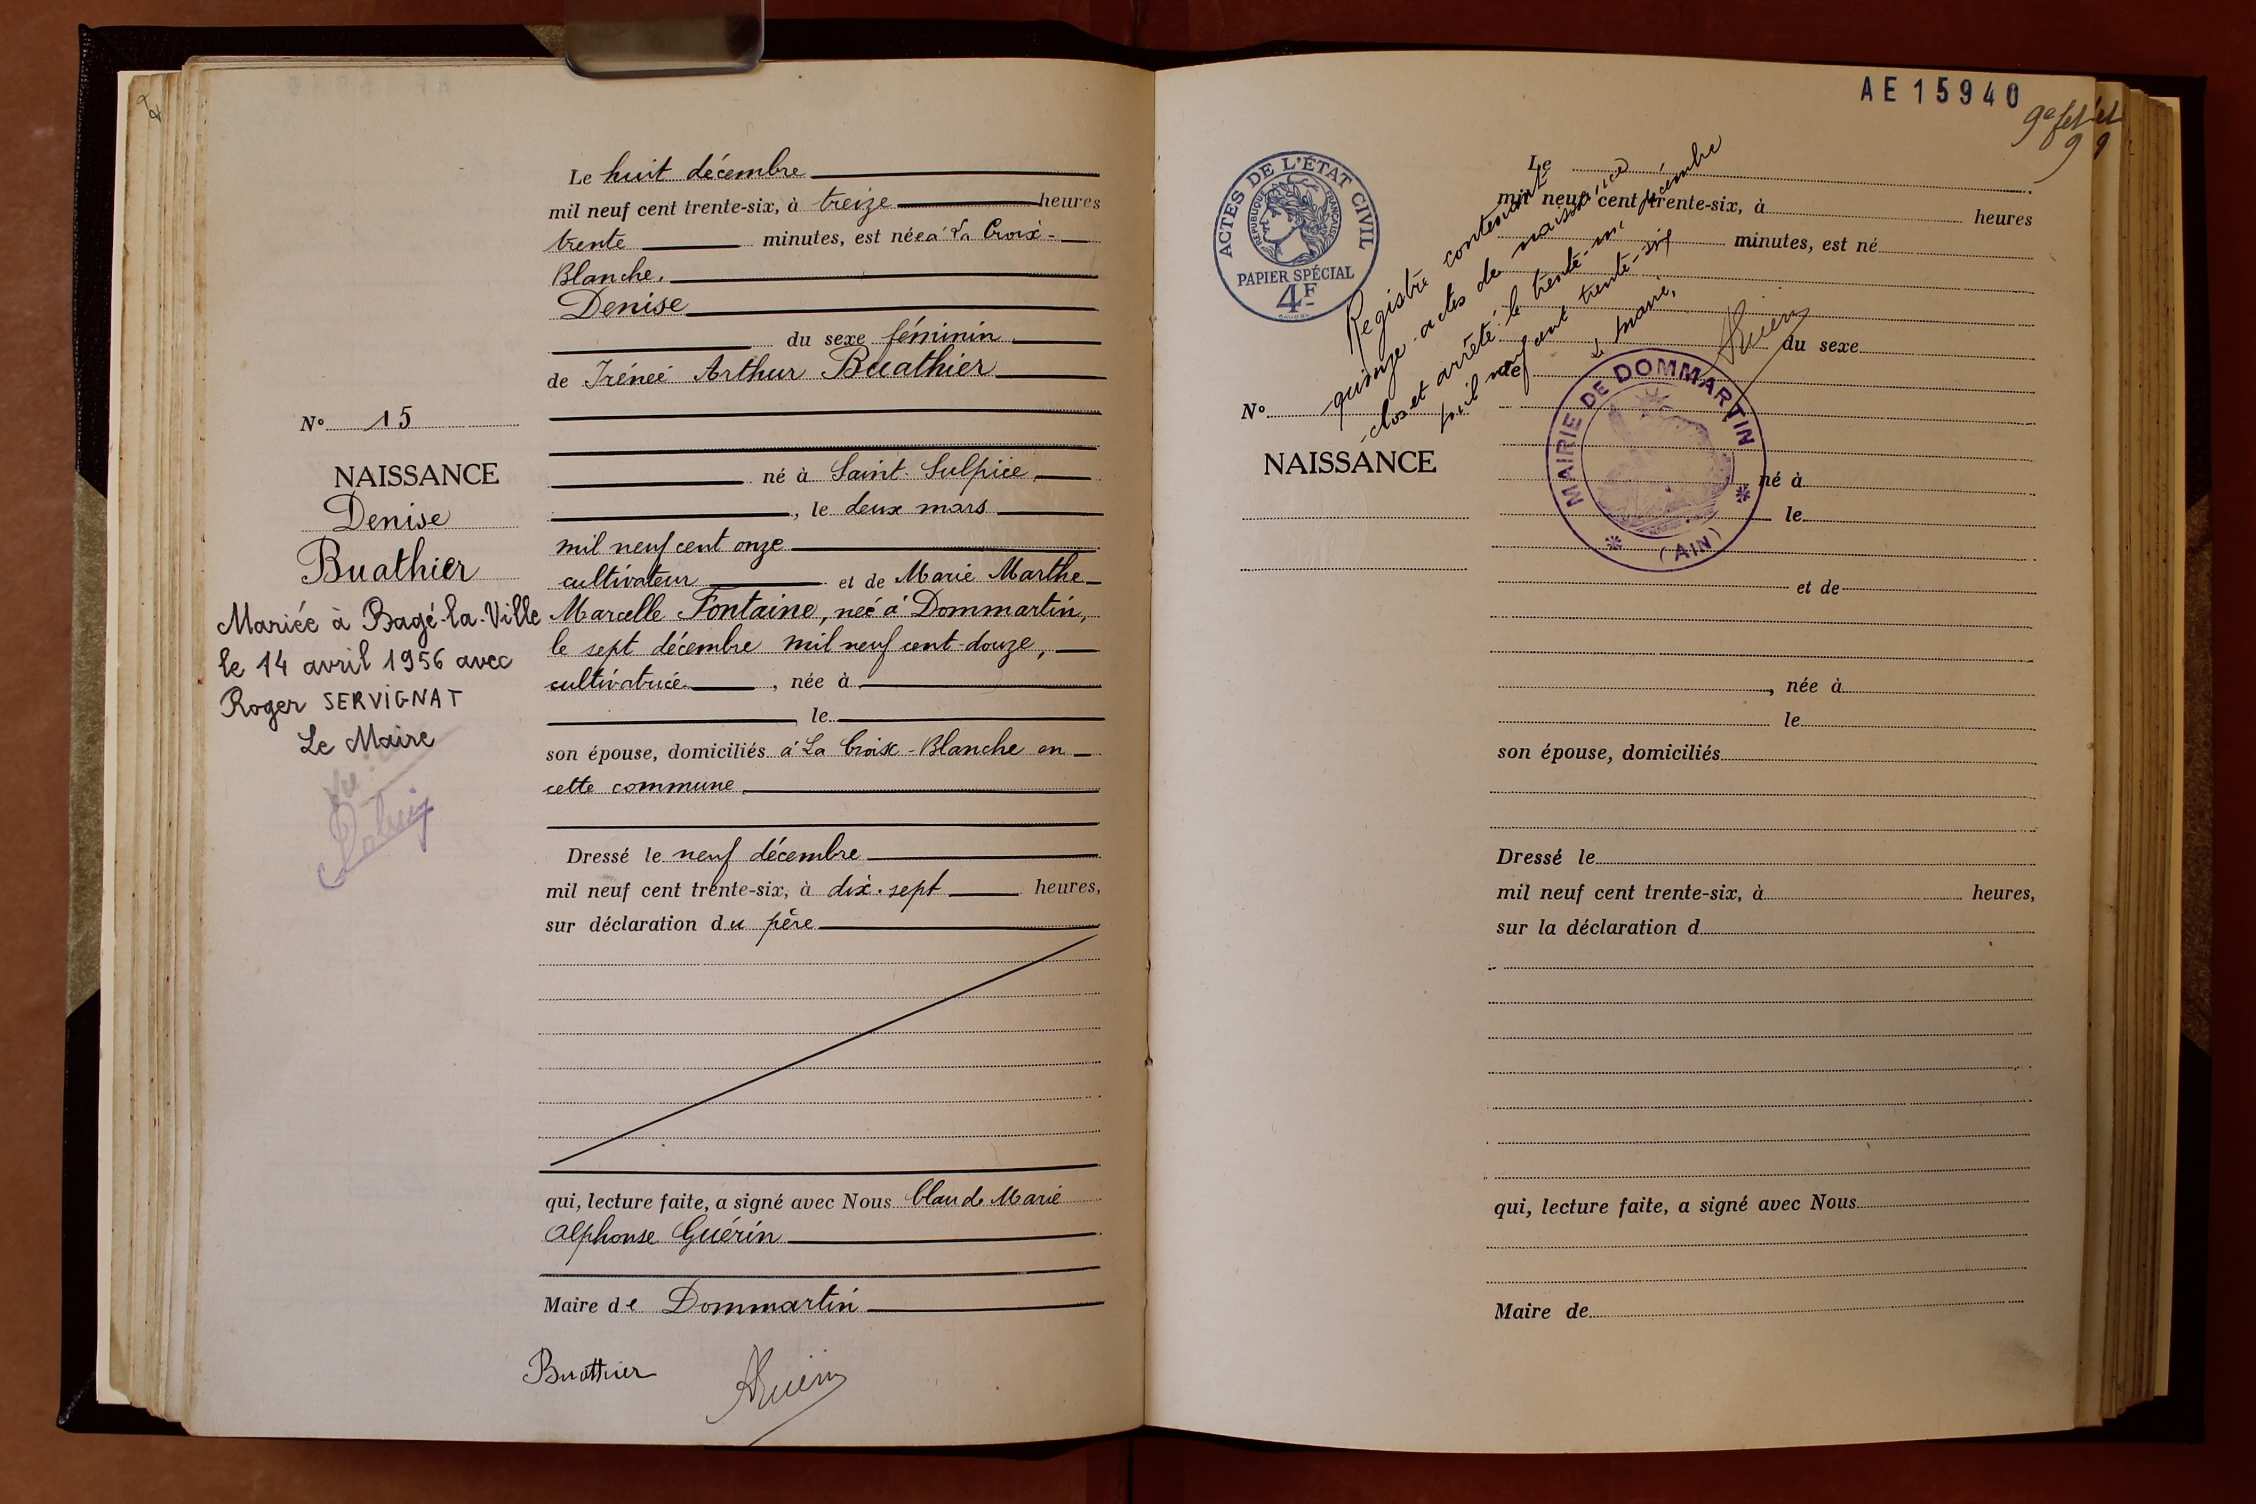 Le huit décembre
mil neuf cent trente-six, à treize heures
trente minutes, est née à La Croix-
Blanche.
Denise
du sexe féminin
de Irénée Arthur Buathier
né à Saint-Sulpice,
, le deux mars
mil neuf cent onze
cultivateur et de Marie Marthe
Marcelle Fontaine, née à Dommartin,
le sept décembre mil neuf cent-douze,
cultivatrice , née à
le
son épouse, domiciliés à La Croix-Blanche en
cette commune.
Dressé le neuf décembre
mil neuf cent trente-six, à dix-sept heures,
sur déclaration du père
qui, lecture faite, a signé avec Nous Claude Marie
Alphonse Guérin
Maire de Dommartin
Buathier
AGuérin
N° 15
NAISSANCE
Denise
Buathier
Mariée à Bagé-la-Ville
le 14 avril 1956 avec
Roger SERVIGNAT
Le Maire
AE15940
9e et
ACTES DE L'ÉTAT CIVIL
RÉPUBLIQUE FRANÇAISE
PAPIER SPÉCIAL
4F
Registre contenant
quinze actes de naissance
clos et arrêté le trente-un décembre
mil neuf cent trente-six
Le maire,
AGuérin
MAIRIE DE DOMMARTIN
(AIN)
Le
mil neuf cent trente-six, à heures
minutes, est né
du sexe
de
N°
NAISSANCE
né à
le
et de
, née à
le
son épouse, domiciliés
Dressé le
mil neuf cent trente-six, à heures,
sur la déclaration d
qui, lecture faite, a signé avec Nous
Maire de